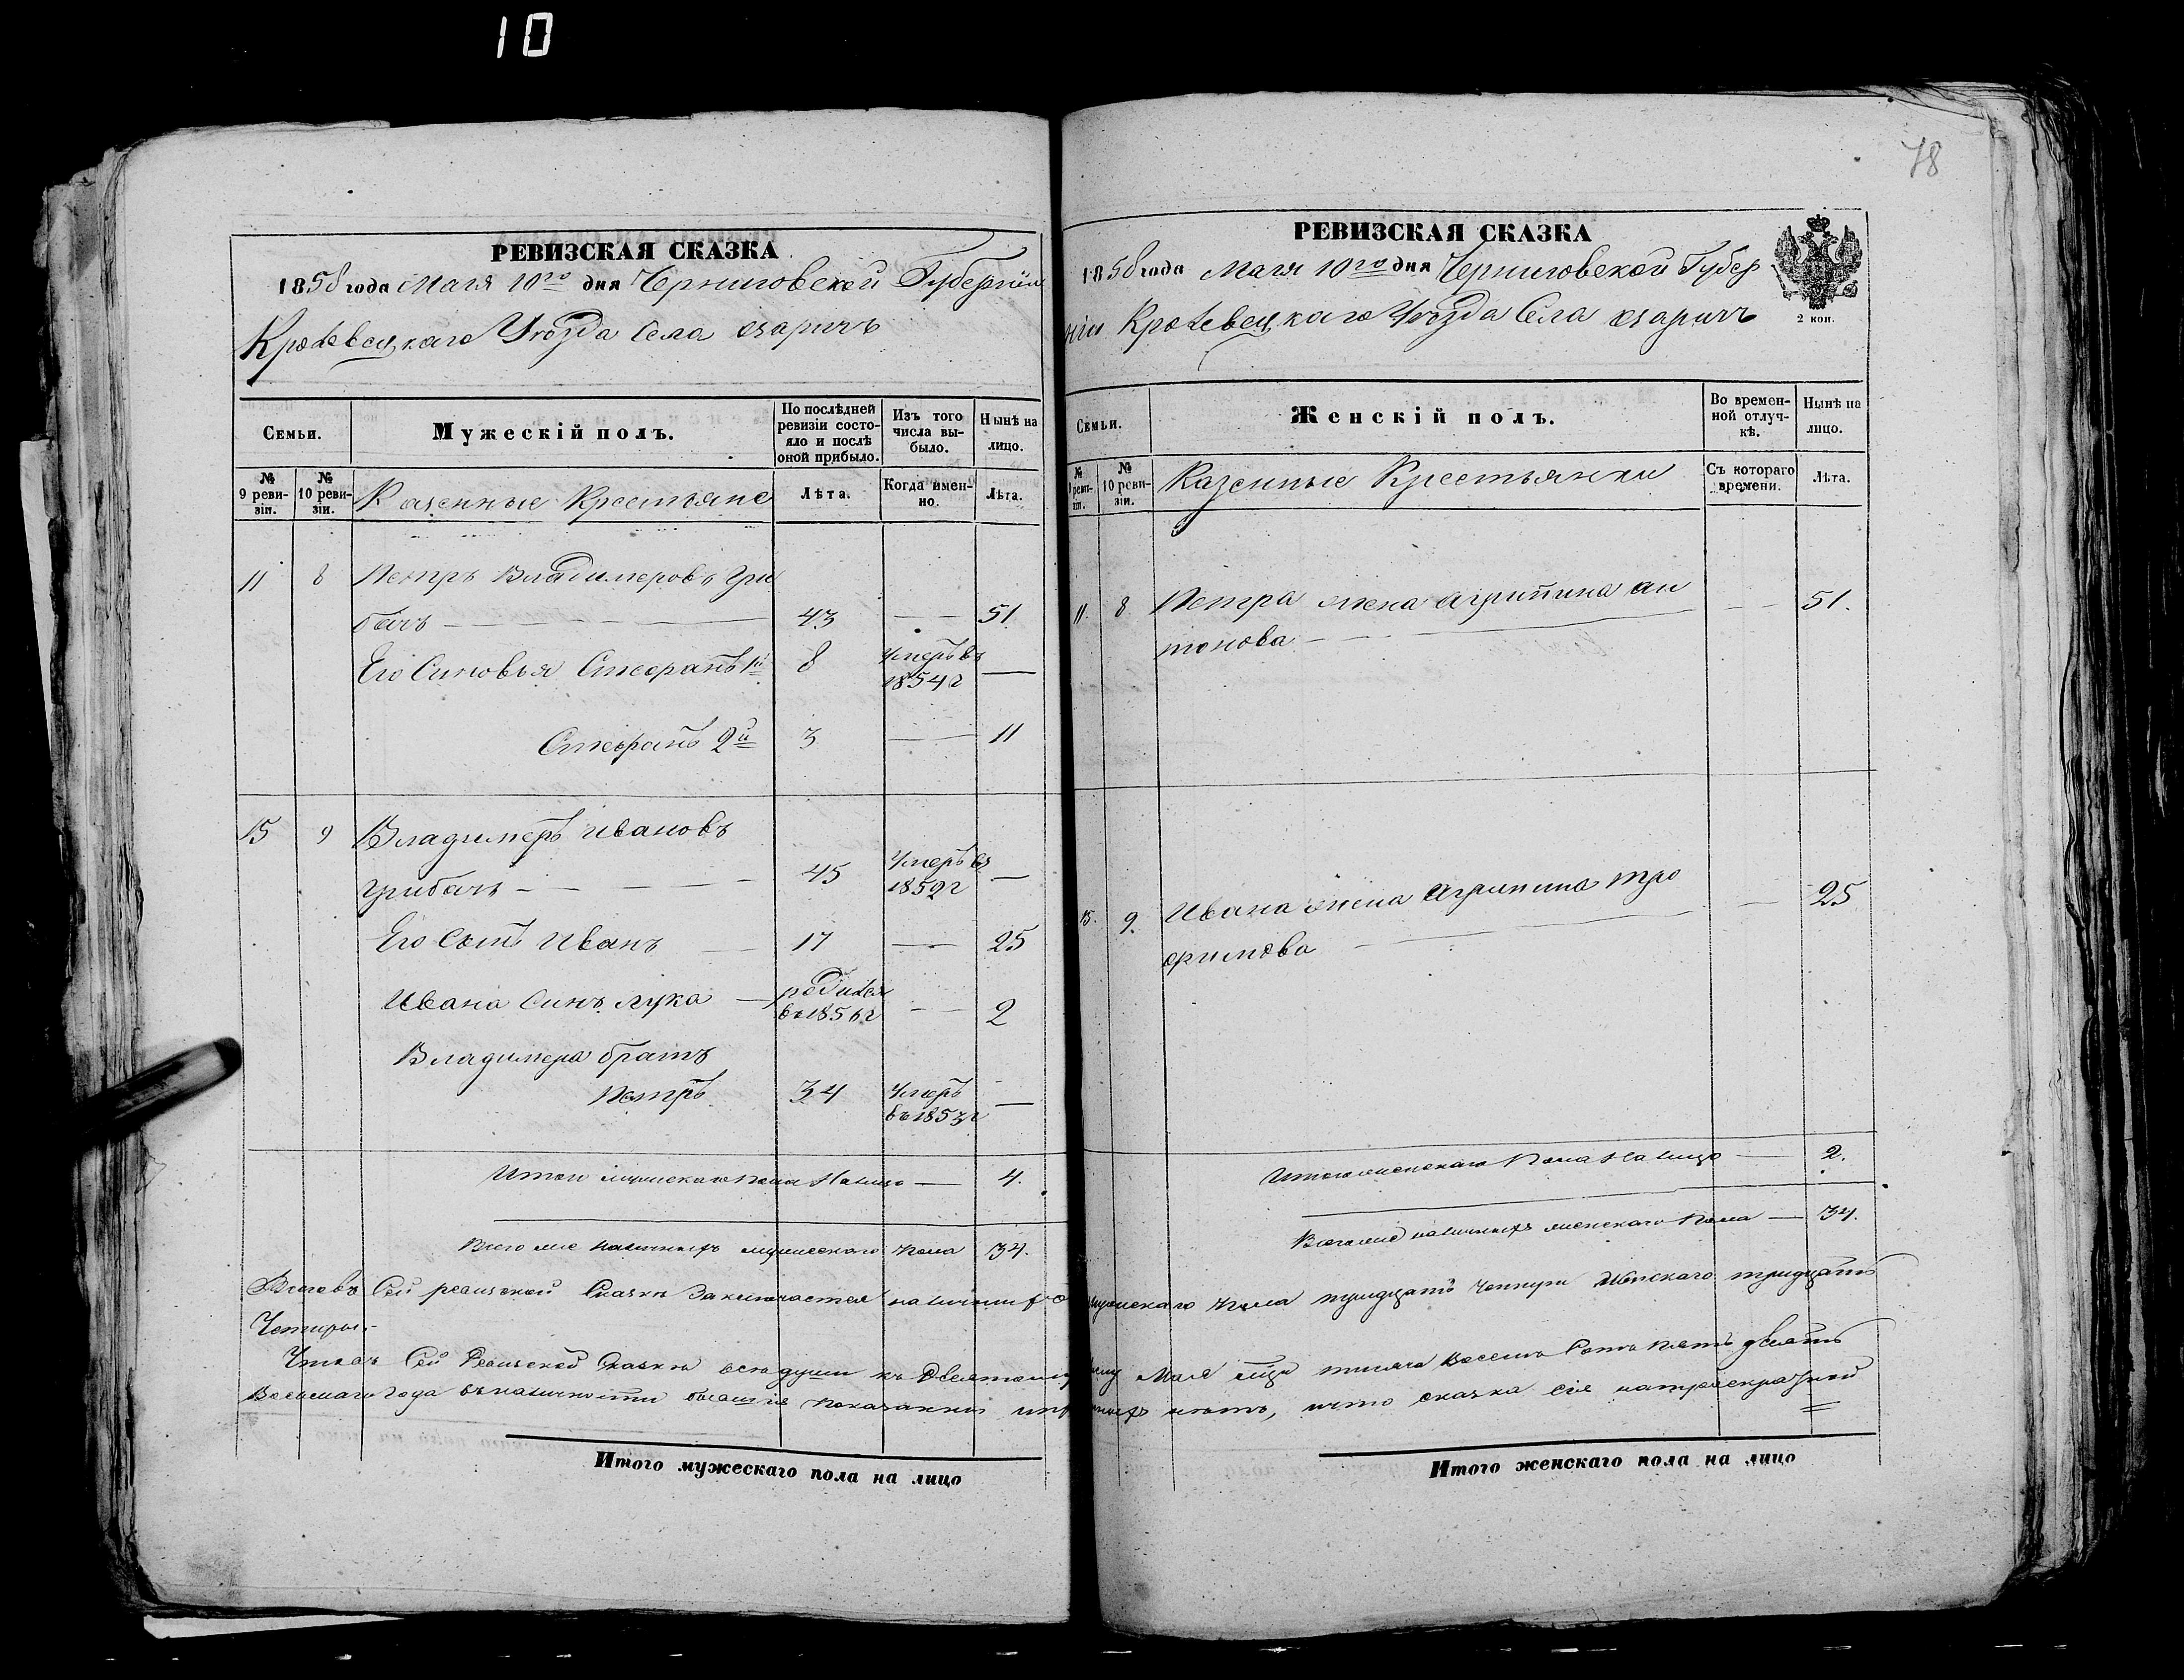 10
78
РЕВИЗСКАЯ СКАЗКА
1858 года Мая 10го дня Черниговской Губерніи
Кролевецкаго Уѣзда Села Озаричъ
Семьи.
Мужескій полъ.
По послѣдней ревизіи состояло и послѣ оной прибыло.
Изъ того числа выбыло.
Нынѣ на лицо.
№ 9 ревизіи.
№ 10 ревизіи.
Казенные Крестьяне
Лѣта.
Когда именно.
Лѣта.
11 8 Петръ Владимеровъ Гри
бачъ — 43 — 51
Его Синовья Стефанъ 1й 8 Умеръ въ 1854 г —
Стефанъ 2й 3 — 11
15 9 Владимеръ Ивановъ
Грибачъ — 45 Умеръ въ 1852 г —
Его Сынъ Иванъ — 17 — 25
Ивана Синъ Лука — родился въ 1856 г — 2
Владимера братъ
Петръ 34 Умеръ въ 1853 г —
Итого мужескаго пола На лицо — 4.
Всего же наличныхъ мужескаго пола 34.
РЕВИЗСКАЯ СКАЗКА
1858 года Мая 10го дня Черниговской Губер
ніи Кролевецкаго Уѣзда Села Озаричъ
2 коп.
Семьи.
Женскій полъ.
Во временной отлучкѣ.
Нынѣ на лицо.
№ 9 ревизіи.
№ 10 ревизіи.
Казенные Крестьянки
Съ котораго времени.
Лѣта.
11. 8. Петра жена Агрипина Ан
тонова — — 51.
15. 9. Ивана жена Агрипина Тро
фимова — — 25
Итого женскаго Пола На лицо — 2.
Всего же наличныхъ женскаго Пола — 34.
Сей ревизской Сказкѣ Заключается наличныхъ мужескаго пола тридцать четыри женскаго тридцать
Четыри.
Сей Ревизской Сказкѣ всѣ души къ Десятому Мая тисяча Восемь Сотъ Пятьдесятъ
Восьмаго Года въ наличности бывшіе показанны нѣтъ, и что сказка сія
Итого мужескаго пола на лицо
Итого женскаго пола на лицо